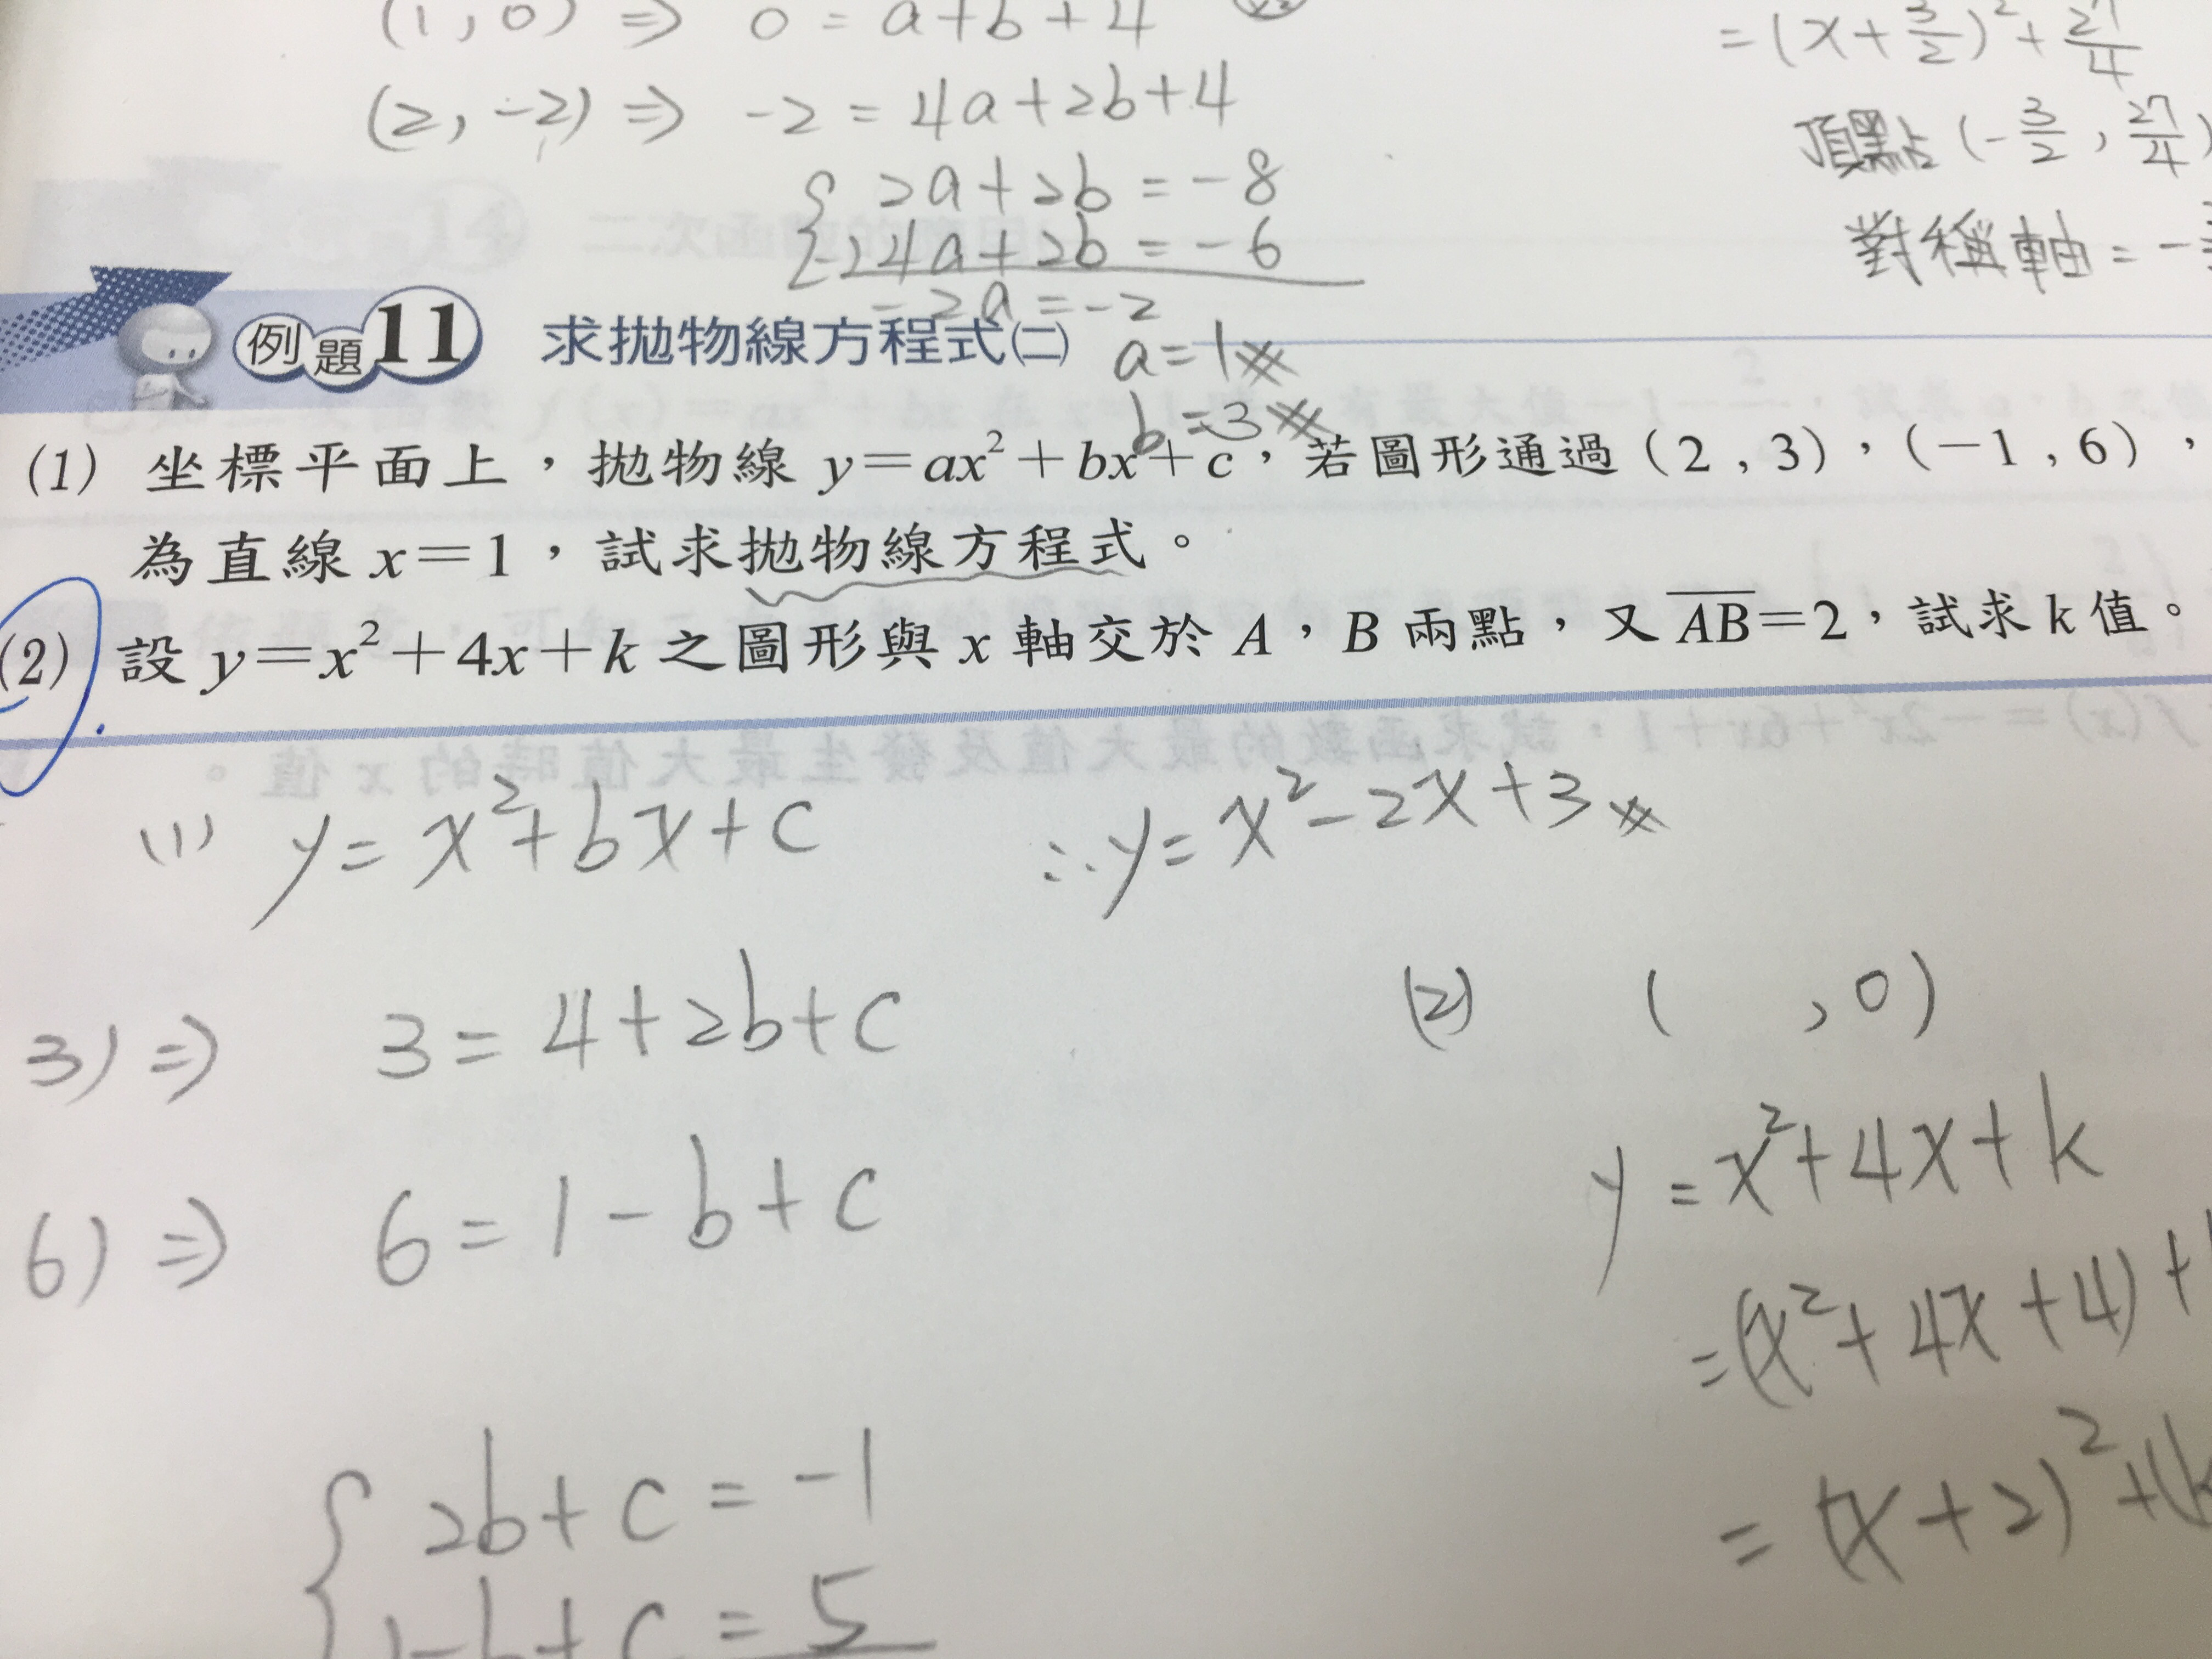 (1,0) ⇒ 0 = a+b+4
(2,-2) ⇒ -2 = 4a+2b+4
2a+2b = -8
-) 4a+2b = -6
-2a = -2
a = 1
b = 3
= (x+3/2)²+27/4
頂點 (-3/2, 27/4)
對稱軸 = -
例題11 求拋物線方程式㈡
(1) 坐標平面上，拋物線 y=ax²+bx+c，若圖形通過 (2,3)，(-1,6)，
為直線 x=1，試求拋物線方程式。
(2) 設 y=x²+4x+k 之圖形與 x 軸交於 A，B 兩點，又 A̅B̅=2，試求 k 值。
(1) y = x²+bx+c
∴y = x²-2x+3
3) ⇒ 3 = 4+2b+c
6) ⇒ 6 = 1-b+c
2b+c = -1
-b+c = 5
(2) ( ,0)
y = x²+4x+k
= (x²+4x+4)+
= (x+2)²+(k